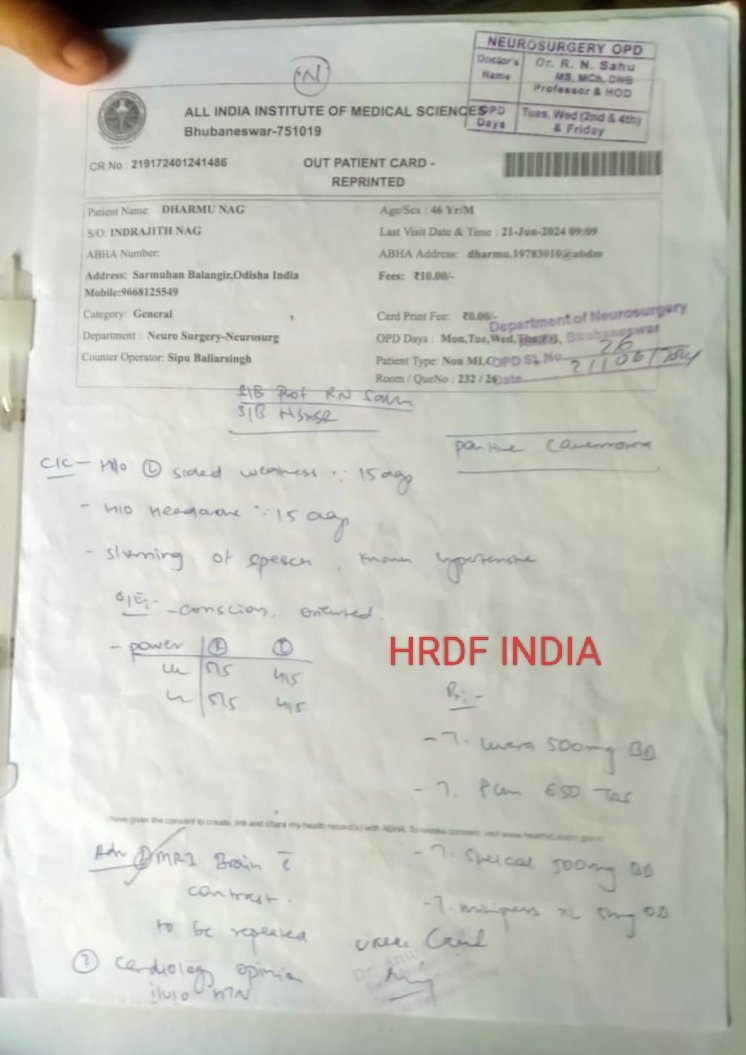 NEUROSURGERY OPD
Doctor's Name
Dr. R. N. Sahu
MS, MCh, DNB
Professor & HOD
OPD Days
Tues, Wed (2nd & 4th)
& Friday
ALL INDIA INSTITUTE OF MEDICAL SCIENCES
Bhubaneswar-751019
CR No : 219172401241486
OUT PATIENT CARD -
REPRINTED
Patient Name: DHARMU NAG
Age/Sex : 46 Yr/M
S/O: INDRAJITH NAG
Last Visit Date & Time : 21-Jun-2024 09:09
ABHA Number:
ABHA Address: dharmu.19783010@abdm
Address: Sarmuhan Balangir,Odisha India
Fees: ₹10.00/-
Mobile:9668125549
Category: General
Card Print Fee: ₹0.00/-
Department of Neurosurgery
Department : Neuro Surgery-Neurosurg
OPD Days : Mon,Tue,Wed,
Bhubaneswar
Counter Operator: Sipu Baliarsingh
Patient Type: Non MLC
OPD Sl. No. 26
Room / QueNo : 232 / 26
Date 21/06/2024
S/B Prof RN Sahu
S/B
C/C - H/o (L) sided weakness
- H/o Headache
- slurring of speech, known hypertensive
O/E:- - conscious, oriented.
- power (R) (L)
5/5 4/5
5/5 4/5
HRDF INDIA
Rx:-
- T. Levera 500mg BD
- T. PCM 650 TDS
I have given the consent to create, link and share my health record(s) with ABHA. To revoke consent, visit
Adv ① MRI Brain c̄
contrast.
to be repeated
- T. 500mg BD
- T. minipress XL 5mg OD
② cardiology opinion
i/v/o HTN